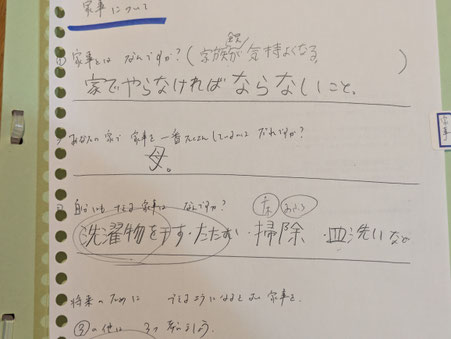 家事について
① 家事とは なんですか？（家族が気持よくなる。）
家でやらなければならないこと。
あなたの家で 家事を一番たくさんしているのは だれですか？
母。
自分にもできる家事は なんですか？
洗濯物を干す・たたむ・掃除・皿洗いなど
将来のために できるようになるとよい家事を、
③の他に 3つ